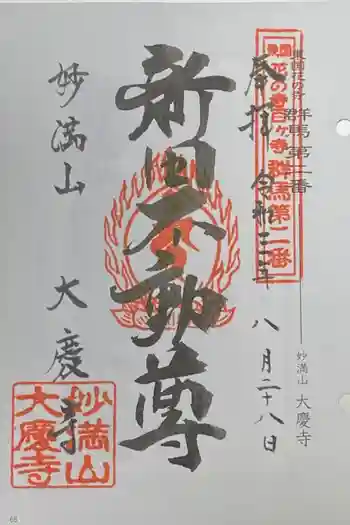 東国花の寺
群馬第二番
東国花の寺百ヶ寺群馬第二番
奉拝 令和三年
八月二十八日
新田不動尊
妙満山 大慶寺
妙満山
大慶寺
妙満山 大慶寺
66